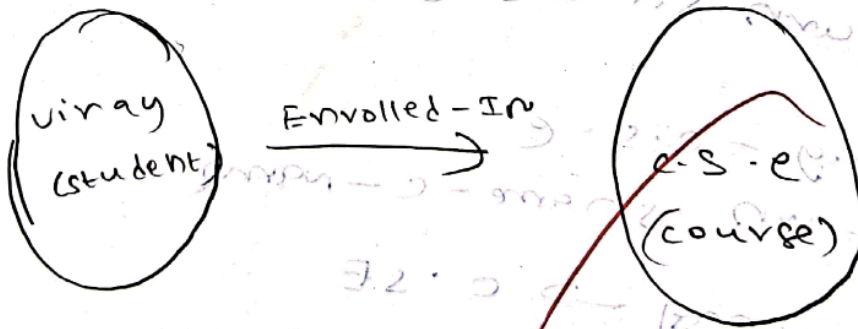 viray
(student)
Enrolled-In
c-s-e
(course)